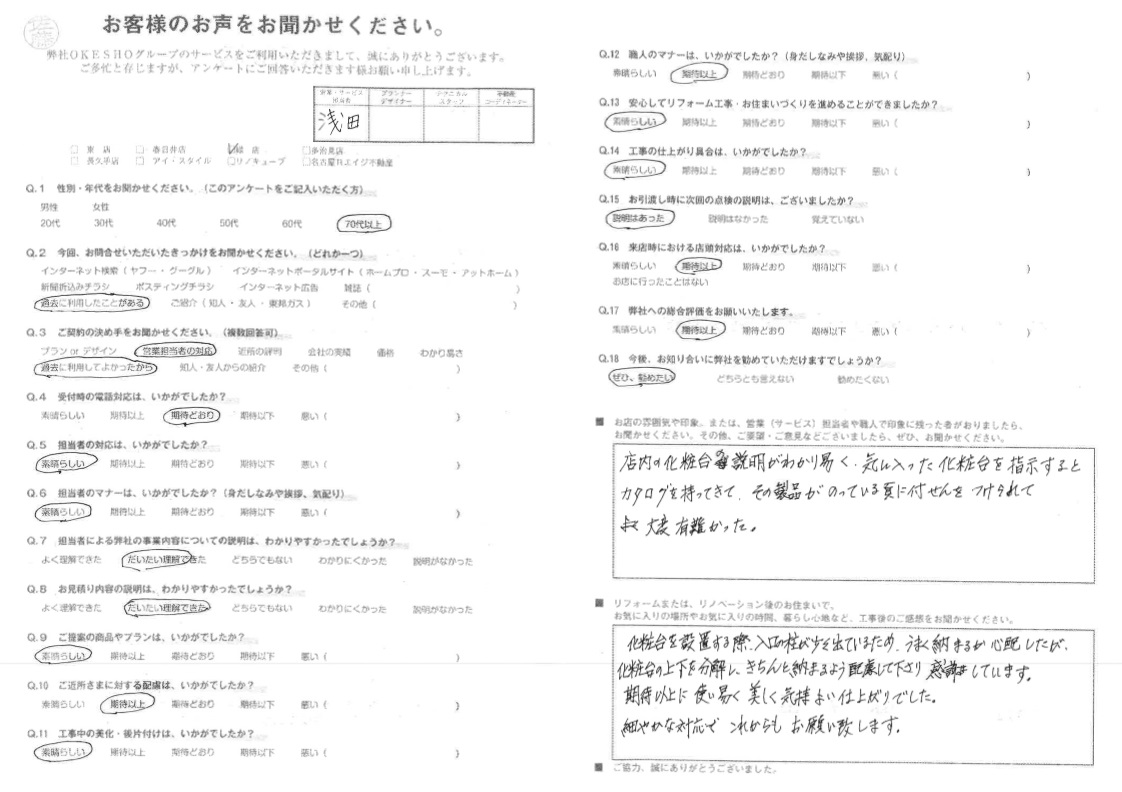 お客様のお声をお聞かせください。
弊社OKESHOグループのサービスをご利用いただきまして、誠にありがとうございます。
ご多忙と存じますが、アンケートにご回答いただきます様お願い申し上げます。
営業・サービス担当者 プランナーデザイナー テクニカルスタッフ 不動産コーディネーター
浅田
□ 東店 □ 春日井店 ☑緑店 □多治見店
□ 長久手店 □ アイ・スタイル □リノキューブ □名古屋東エイジ不動産
Q.1 性別・年代をお聞かせください。（このアンケートをご記入いただく方）
男性 女性
20代 30代 40代 50代 60代 70代以上
Q.2 今回、お問合せいただいたきっかけをお聞かせください。（どれか一つ）
インターネット検索（ヤフー・グーグル） インターネットポータルサイト（ホームプロ・スーモ・アットホーム）
新聞折込みチラシ ポスティングチラシ インターネット広告 雑誌（ ）
過去に利用したことがある ご紹介（知人・友人・東邦ガス） その他（ ）
Q.3 ご契約の決め手をお聞かせください。（複数回答可）
プラン or デザイン 営業担当者の対応 近所の評判 会社の実績 価格 わかり易さ
過去に利用してよかったから 知人・友人からの紹介 その他（ ）
Q.4 受付時の電話対応は、いかがでしたか？
素晴らしい 期待以上 期待どおり 期待以下 悪い（ ）
Q.5 担当者の対応は、いかがでしたか？
素晴らしい 期待以上 期待どおり 期待以下 悪い（ ）
Q.6 担当者のマナーは、いかがでしたか？（身だしなみや挨拶、気配り）
素晴らしい 期待以上 期待どおり 期待以下 悪い（ ）
Q.7 担当者による弊社の事業内容についての説明は、わかりやすかったでしょうか？
よく理解できた だいたい理解できた どちらでもない わかりにくかった 説明がなかった
Q.8 お見積り内容の説明は、わかりやすかったでしょうか？
よく理解できた だいたい理解できた どちらでもない わかりにくかった 説明がなかった
Q.9 ご提案の商品やプランは、いかがでしたか？
素晴らしい 期待以上 期待どおり 期待以下 悪い（ ）
Q.10 ご近所さまに対する配慮は、いかがでしたか？
素晴らしい 期待以上 期待どおり 期待以下 悪い（ ）
Q.11 工事中の美化・後片付けは、いかがでしたか？
素晴らしい 期待以上 期待どおり 期待以下 悪い（ ）
Q.12 職人のマナーは、いかがでしたか？（身だしなみや挨拶、気配り）
素晴らしい 期待以上 期待どおり 期待以下 悪い（ ）
Q.13 安心してリフォーム工事・お住まいづくりを進めることができましたか？
素晴らしい 期待以上 期待どおり 期待以下 悪い（ ）
Q.14 工事の仕上がり具合は、いかがでしたか？
素晴らしい 期待以上 期待どおり 期待以下 悪い（ ）
Q.15 お引渡し時に次回の点検の説明は、ございましたか？
説明はあった 説明はなかった 覚えていない
Q.16 来店時における店頭対応は、いかがでしたか？
素晴らしい 期待以上 期待どおり 期待以下 悪い（ ）
お店に行ったことはない
Q.17 弊社への総合評価をお願いいたします。
素晴らしい 期待以上 期待どおり 期待以下 悪い（ ）
Q.18 今後、お知り合いに弊社を勧めていただけますでしょうか？
ぜひ、勧めたい どちらとも言えない 勧めたくない
■ お店の雰囲気や印象。または、営業（サービス）担当者や職人で印象に残った者がおりましたら、
お聞かせください。その他、ご要望・ご意見などございましたら、ぜひ、お聞かせください。
店内の化粧台の説明がわかり易く、気に入った化粧台を指示すると
カタログを持ってきて、その製品がのっている頁に付せんをつけられて
大変有難かった。
■ リフォームまたは、リノベーション後のお住まいで、
お気に入りの場所やお気に入りの時間、暮らし心地など、工事後のご感想をお聞かせください。
化粧台を設置する際、入口の柱が少々出ているため、うまく納まるか心配したが、
化粧台の上下を分解し、きちんと納まるよう配慮して下さり感謝しています。
期待以上に使い易く美しく気持よい仕上がりでした。
細やかな対応でこれからもお願い致します。
■ ご協力、誠にありがとうございました。